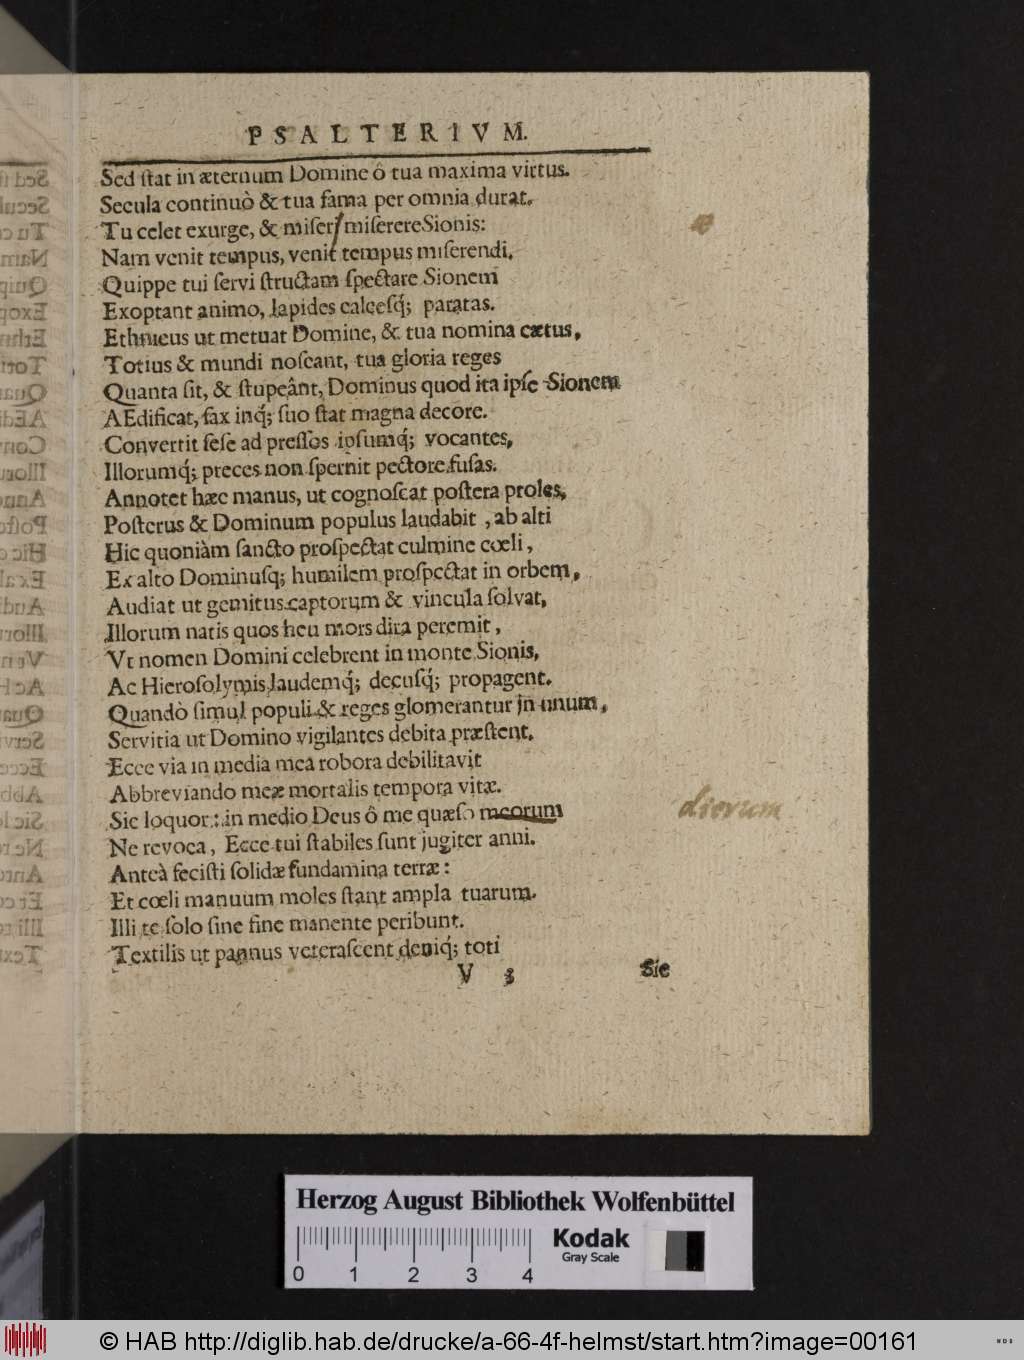 PSALTERIVM.
Sed ſtat in æternum Domine ô tua maxima virtus.
Secula continuò & tua fama per omnia durat.
Tu celer exurge, & miſer, miſerere Sionis:
Nam venit tempus, venit tempus miſerendi,
Quippe tui ſervi ſtructam ſpectare Sionem
Exoptant animo, lapides calceſq́; paratas.
Ethnicus ut metuat Domine, & tua nomina cætus,
æ
Totius & mundi noſcant, tua gloria reges
Quanta ſit, & ſtupeânt, Dominus quod ita ipſe Sionem
AEdificat, ſax inq́; ſuo ſtat magna decore.
Convertit ſeſe ad preſſos ipſumq́; vocantes,
Illorumq́; preces non ſpernit pectore fuſas.
Annotet hæc manus, ut cognoſcat poſtera proles,
Poſterus & Dominum populus laudabit , ab alti
Hic quoniàm ſancto proſpectat culmine cœli ,
Ex alto Dominuſq; humilem proſpectat in orbem,
Audiat ut gemitus captorum & vincula ſolvat,
Illorum natis quos heu mors dira peremit ,
Vt nomen Domini celebrent in monte Sionis,
Ac Hieroſolymis laudemq́; decuſq́; propagent.
Quandò ſimul populi & reges glomerantur jn unum,
Servitia ut Domino vigilantes debita præſtent.
Ecce via in media mea robora debilitavit
Abbreviando meæ mortalis tempora vitæ.
Sic loquor: in medio Deus ô me quæſo meorum
dierum
Ne revoca, Ecce tui ſtabiles ſunt jugiter anni.
Anteà feciſti ſolidæ fundamina terræ:
Et cœli manuum moles ſtant ampla tuarum.
Illi te ſolo ſine fine manente peribunt.
Textilis ut pannus veteraſcent deniq́; toti
V 3 Sic
Herzog August Bibliothek Wolfenbüttel
Kodak
Gray Scale
0 1 2 3 4
© HAB http://diglib.hab.de/drucke/a-66-4f-helmst/start.htm?image=00161